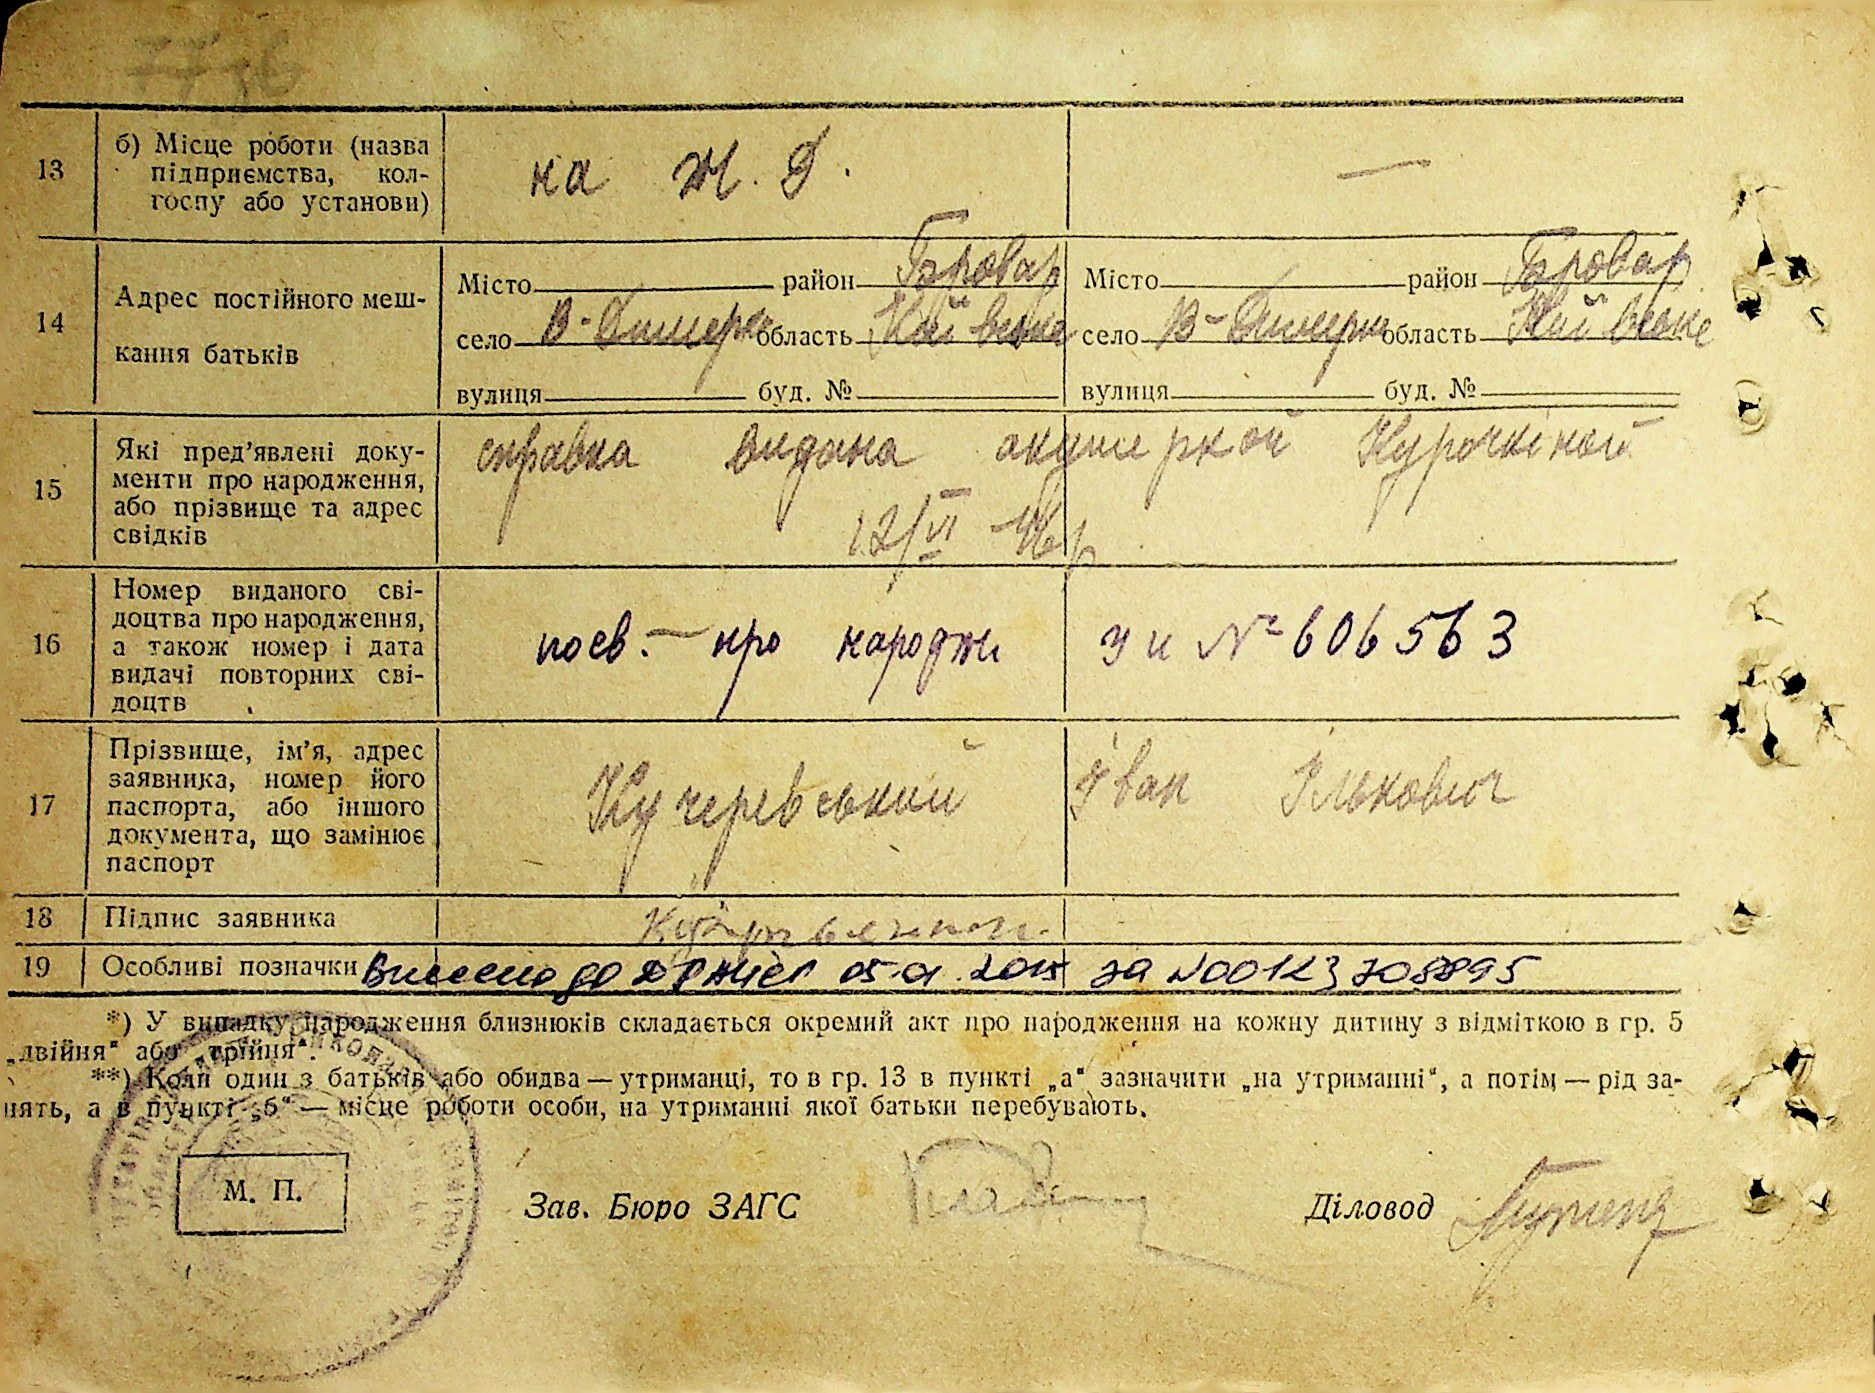 13
б) Місце роботи (назва
підприємства, кол-
госпу або установи)
на Ж. Д.
—
14
Адрес постійного меш-
кання батьків
Місто район Бровар
село В-Димерка область Київське
вулиця буд. №
Місто район Бровар
село В-Димерка область Київське
вулиця буд. №
15
Які пред’явлені доку-
менти про народження,
або прізвище та адрес
свідків
справка видана акушеркой Курочкіной
12/VI 46 р
16
Номер виданого сві-
доцтва про народження,
а також номер і дата
видачі повторних сві-
доцтв
посв. про народж. № 606563
17
Прізвище, ім’я, адрес
заявника, номер його
паспорта, або іншого
документа, що замінює
паспорт
Кучеревський Іван Ількович
18
Підпис заявника
19
Особливі позначки
Внесено до за №00123708895
*) У випадку народження близнюків складається окремий акт про народження на кожну дитину з відміткою в гр. 5
„двійня“ або „трійня“.
**) Коли один з батьків або обидва — утриманці, то в гр. 13 в пункті „а“ зазначити „на утриманні“, а потім — рід за-
нять, а в пункті „б“ — місце роботи особи, на утриманні якої батьки перебувають.
М. П.
Зав. Бюро ЗАГС
Діловод